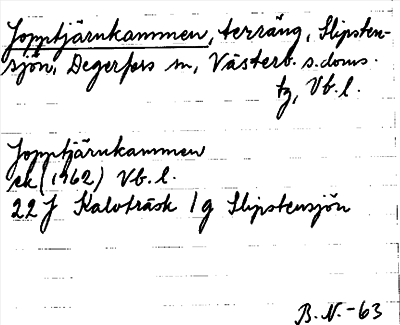 Jopptjärnkammen, terräng, Slipsten-
sjön, Degerfors sn, Västerb. s. doms.
tg, Vb. l.
Jopptjärnkammen
ek (1962) Vb. l.
22 J Kalvträsk 1g Slipstensjön
B. N. -63